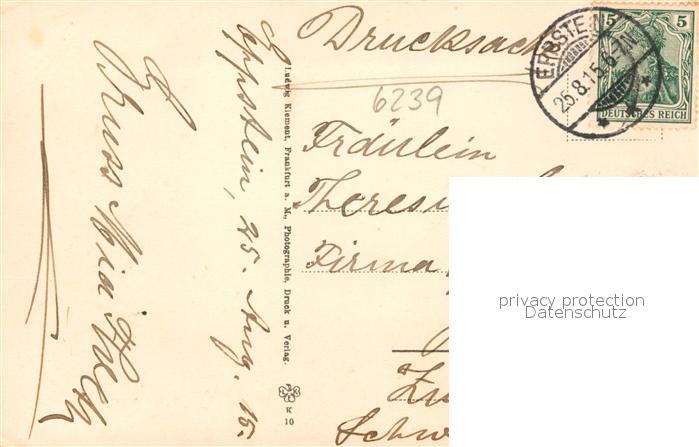 Drucksache
6239
Fräulein
Firma
Eppstein, 25. Aug. 15.
Gruss
Ludwig Klement, Frankfurt a. M., Photographie, Druck u. Verlag.
K
10
5 5
DEUTSCHES REICH
25.8.15.6-7N
privacy protection
Datenschutz